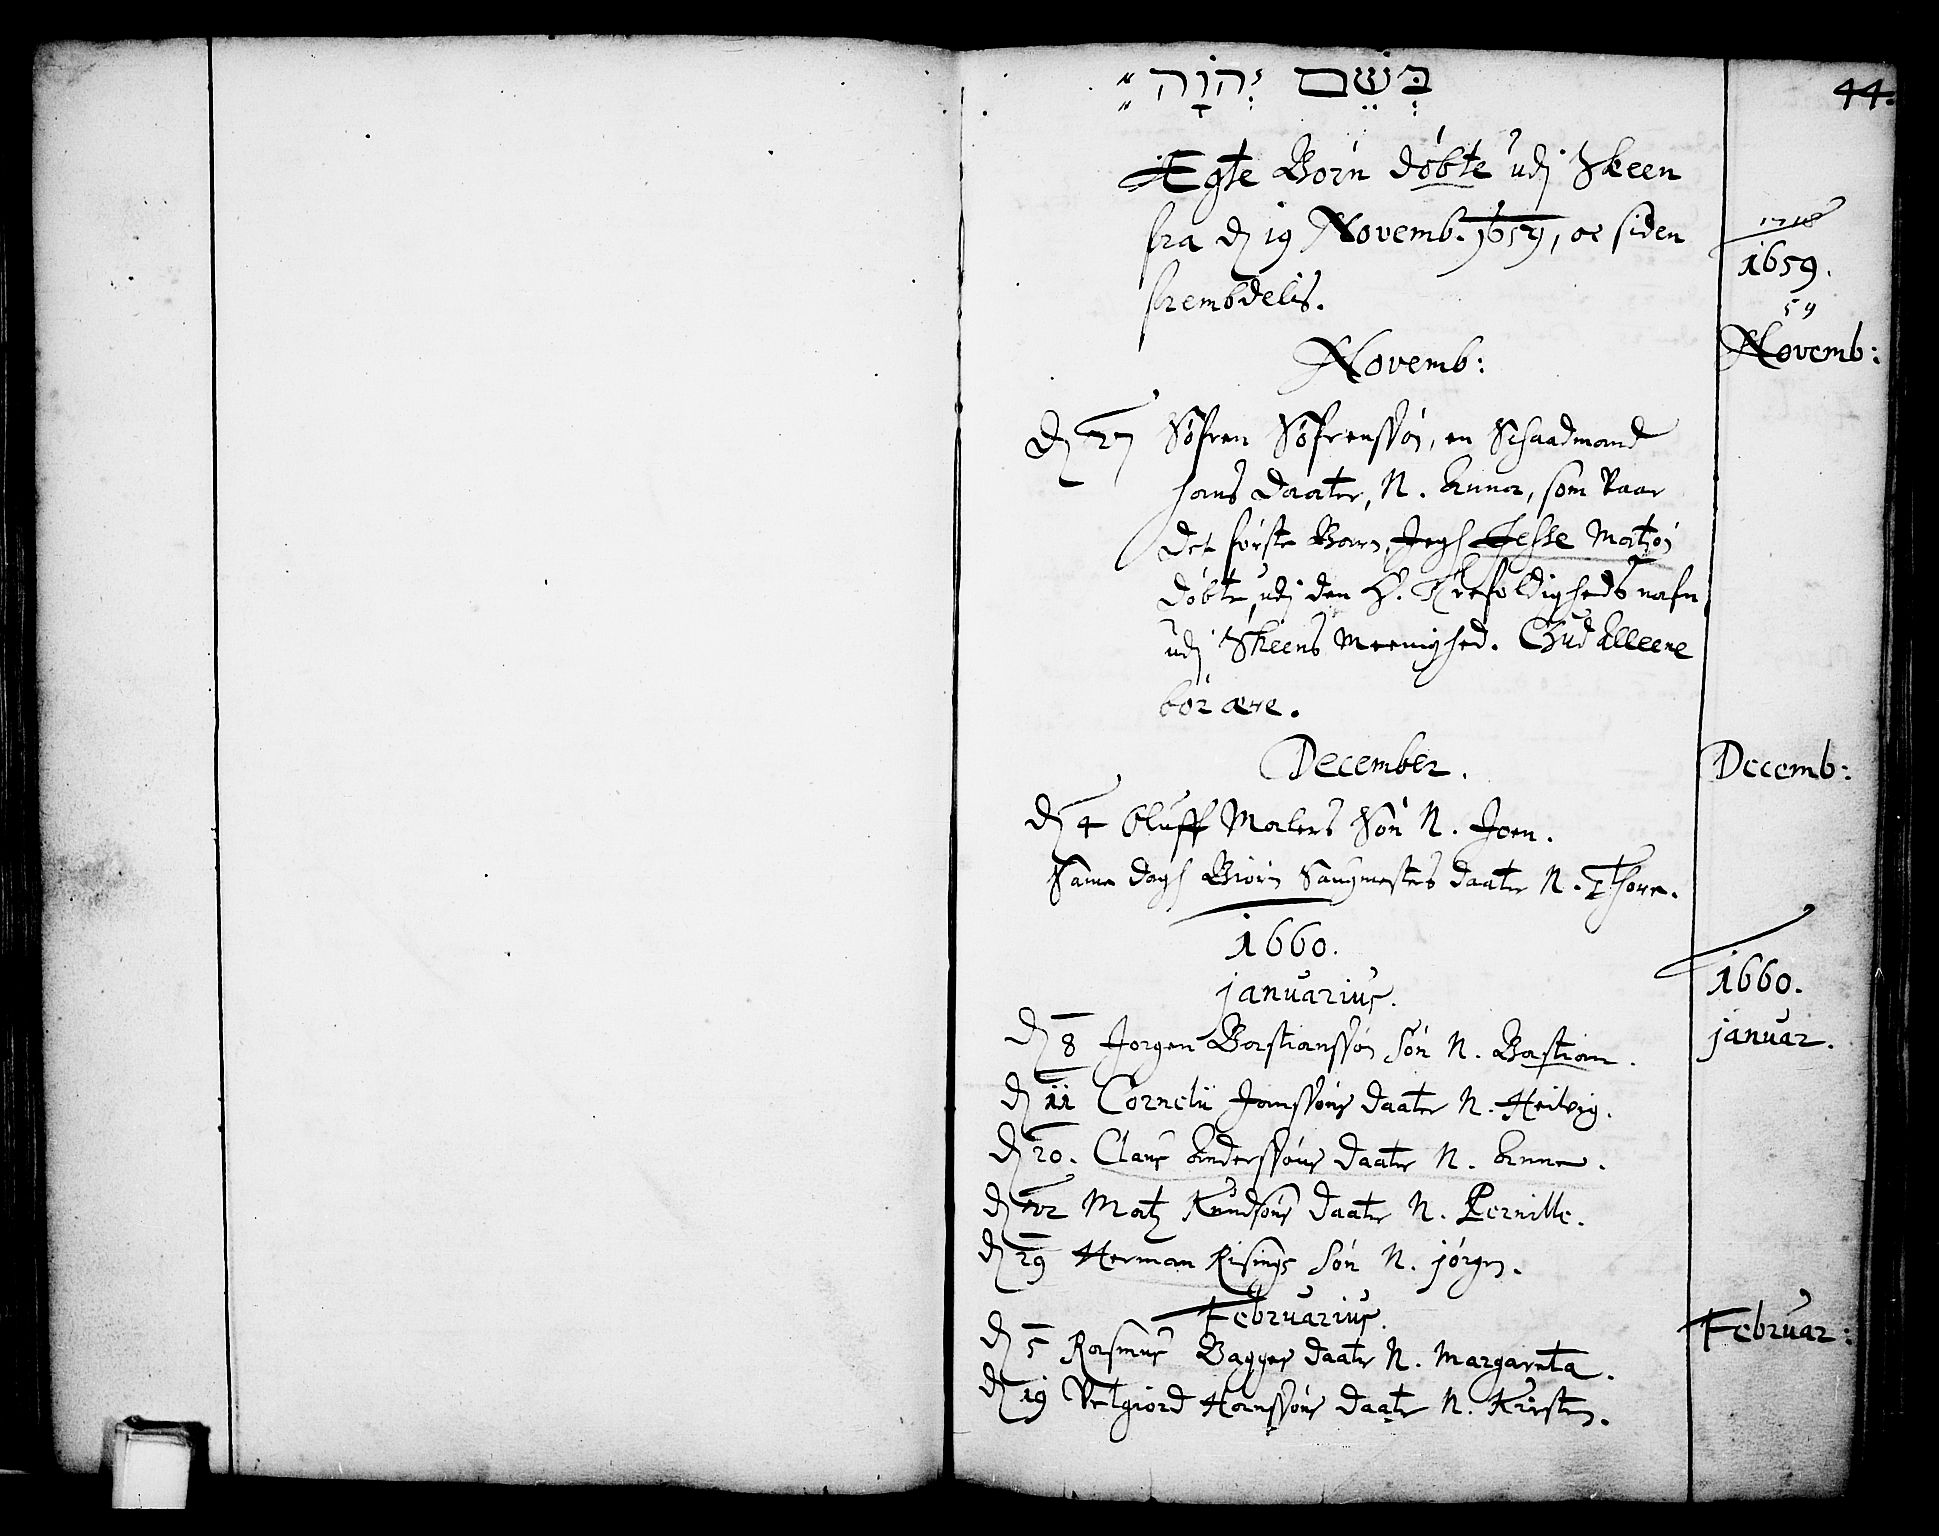 בְּשֵׁם יְהוָֹה
44.
Ægte Børn døbte udj Skeen
fra dn 19 Novemb. 1659, oc siden
frembdelis.
1659.
59
Novemb:
Novemb:
dn 27 Søfren Søfrenssøn, en Schaadmand
hans daater, N. Anna, som vaar
det første Barn, Jegh Jesse Matzøn
døbte, udj den H. Trefoldigheds nafn
udj Skeens Meenighed. Gud alleene
bør ære.
December.
Decemb:
dn 4 Oluff Malers Søn N. Joen.
Same dagh Biørn Saugmesters daater N. Thore.
1660.
1660.
januarius.
januar.
dn 8 Jorgen Bastianssøn Søn N. Bastian.
dn 11 Cornelii Janssøns daater N. Heilvig.
dn 20. Claus Anderssøns daater N. Anne.
dn 22 Matz Knudsøns daater N. Pernille.
dn 29 Herman Risings Søn N. jørgn.
Februarius.
Februar:
dn 5 Rasmus Bagges daater N. Margareta.
dn 19 Vetgiord Hanssøns daater N. Kirsten.